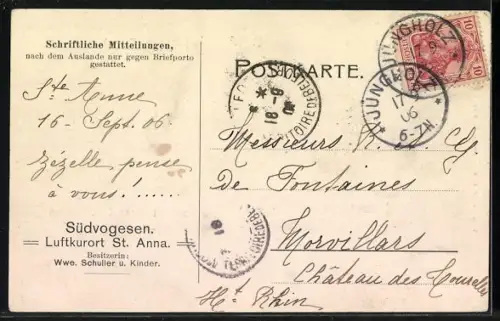 Schriftliche Mitteilungen,
nach dem Auslande nur gegen Briefporto
gestattet.
POSTKARTE.
Ste Anne
16 - Sept. 06
Zézelle pense
à vous!......
Südvogesen.
Luftkurort St. Anna.
Besitzerin:
Wwe. Schuller u. Kinder.
Messieurs R. et G.
de Fontaines
Morvillars
Château des Tourelles
Ht Rhin
JUNGHOLZ
17 9
06
6-7N
18 -9
TERRITOIRE DE BELFORT
10 10